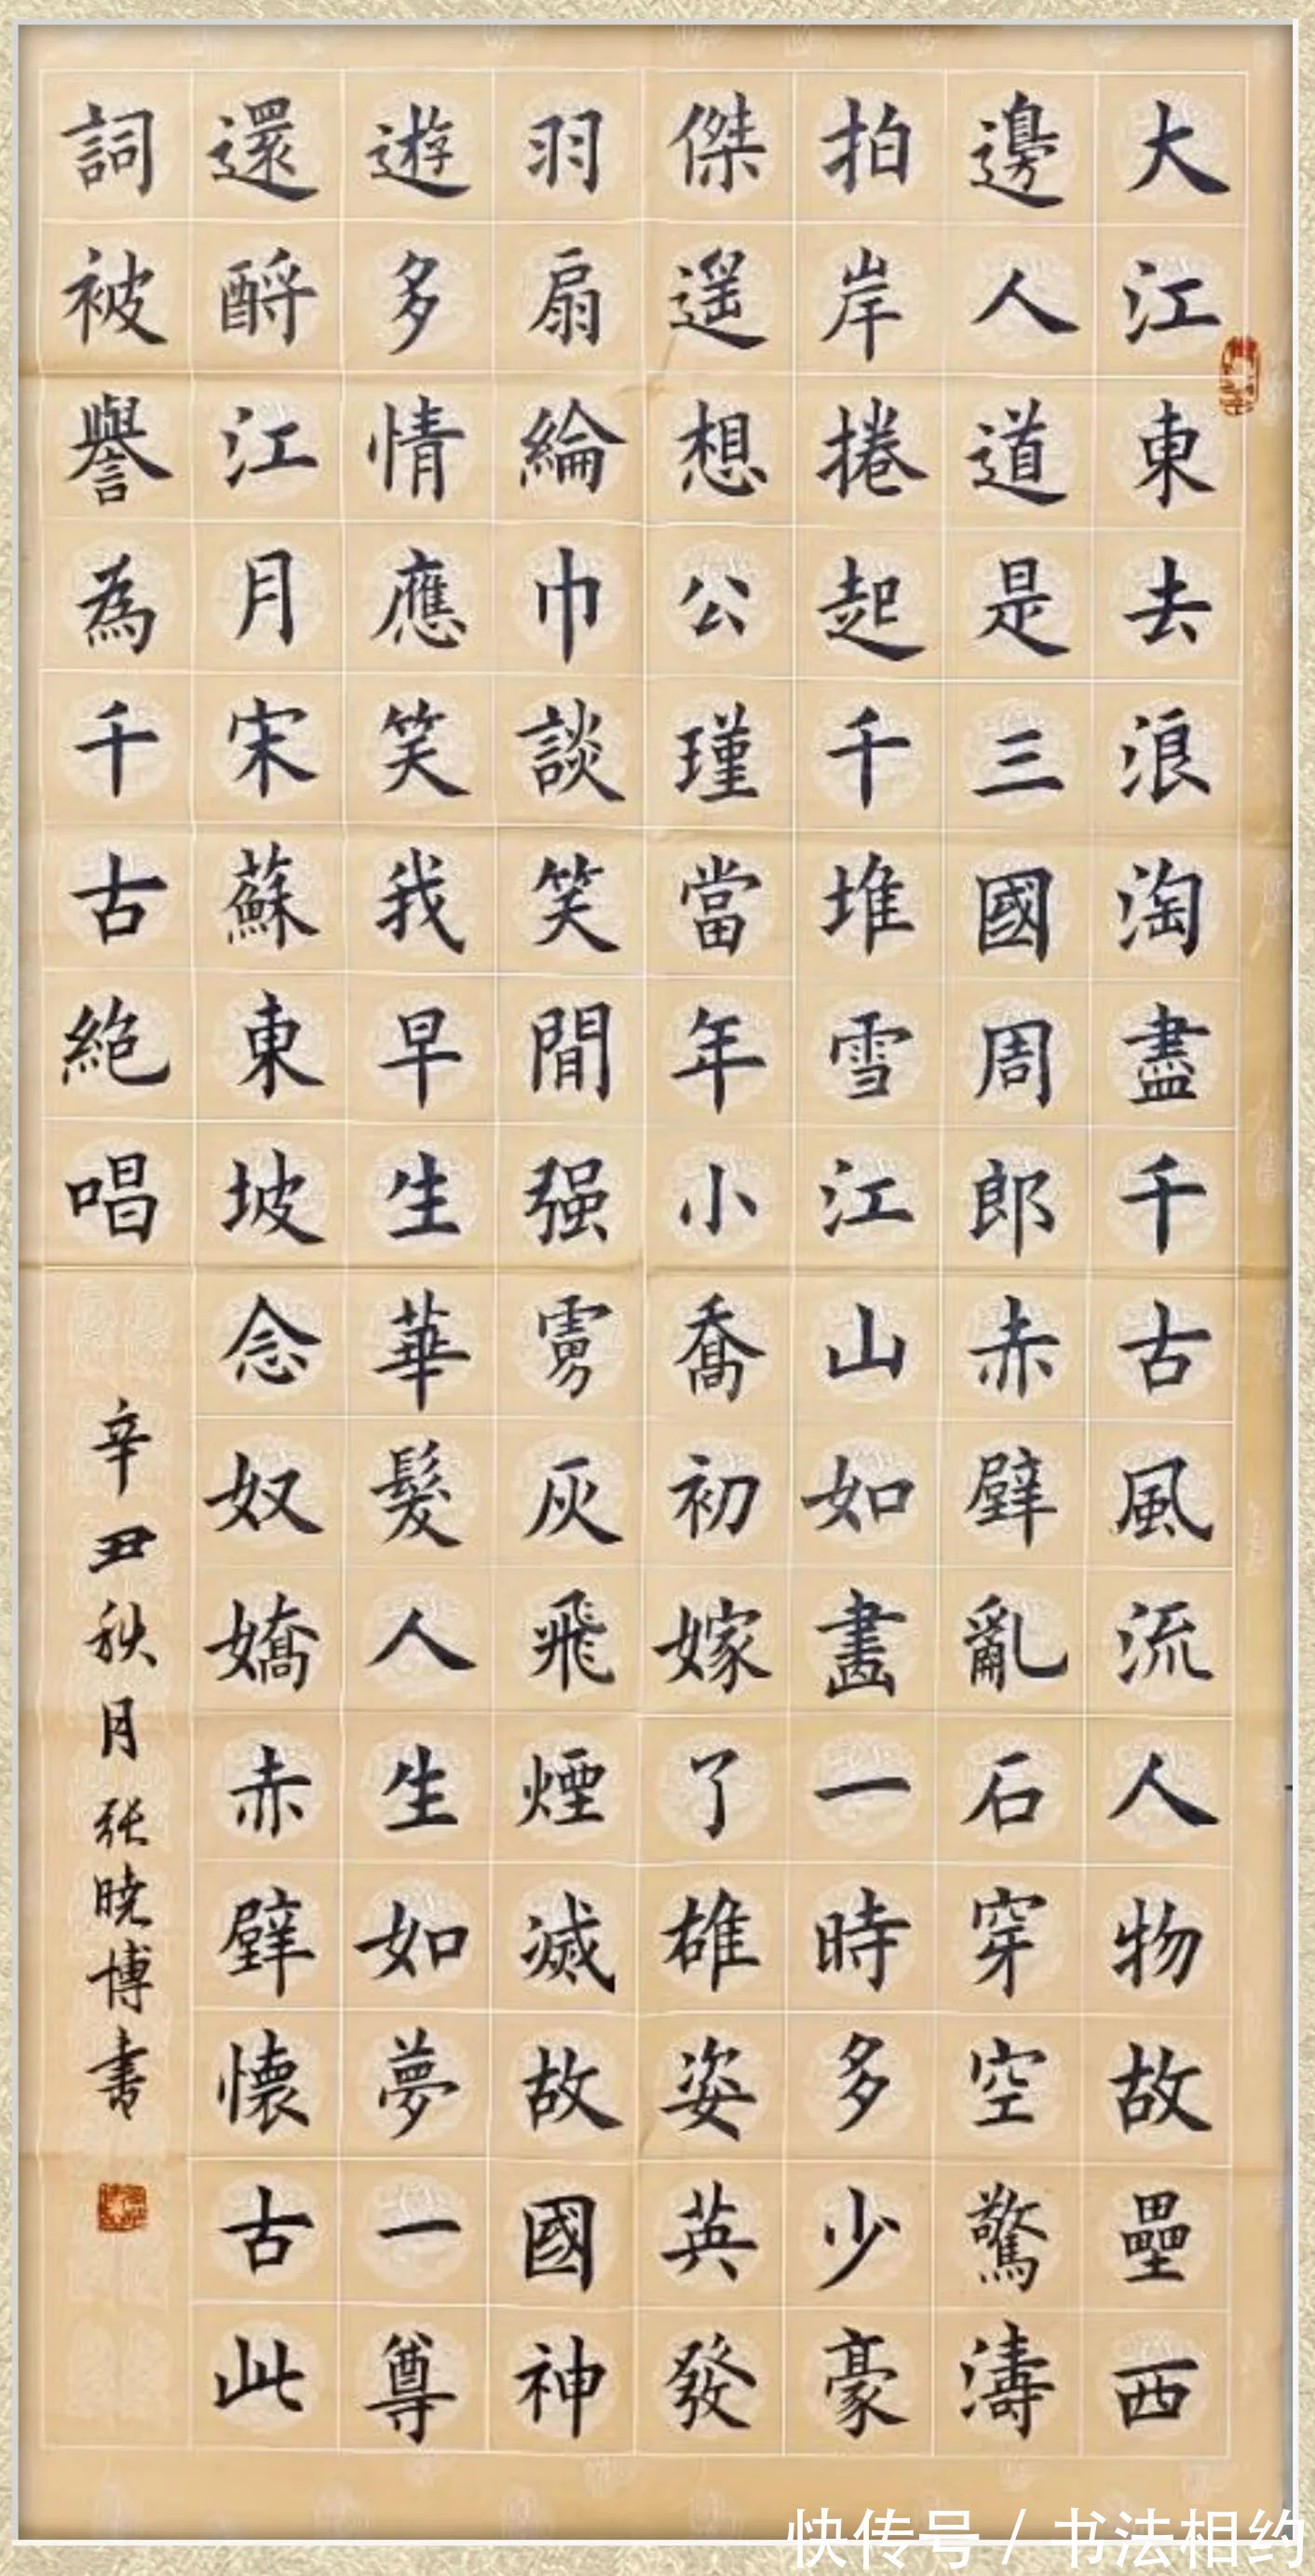 大江東去浪淘盡千古風流人物故壘西
邊人道是三國周郎赤壁亂石穿空驚濤
拍岸捲起千堆雪江山如畫一時多少豪
傑遥想公瑾當年小喬初嫁了雄姿英發
羽扇綸巾談笑間强虜灰飛煙滅故國神
遊多情應笑我早生華髮人生如夢一尊
還酹江月宋蘇東坡念奴嬌赤壁懷古此
詞被譽為千古絶唱
辛丑秋月张晓博書
快传号 / 书法相约